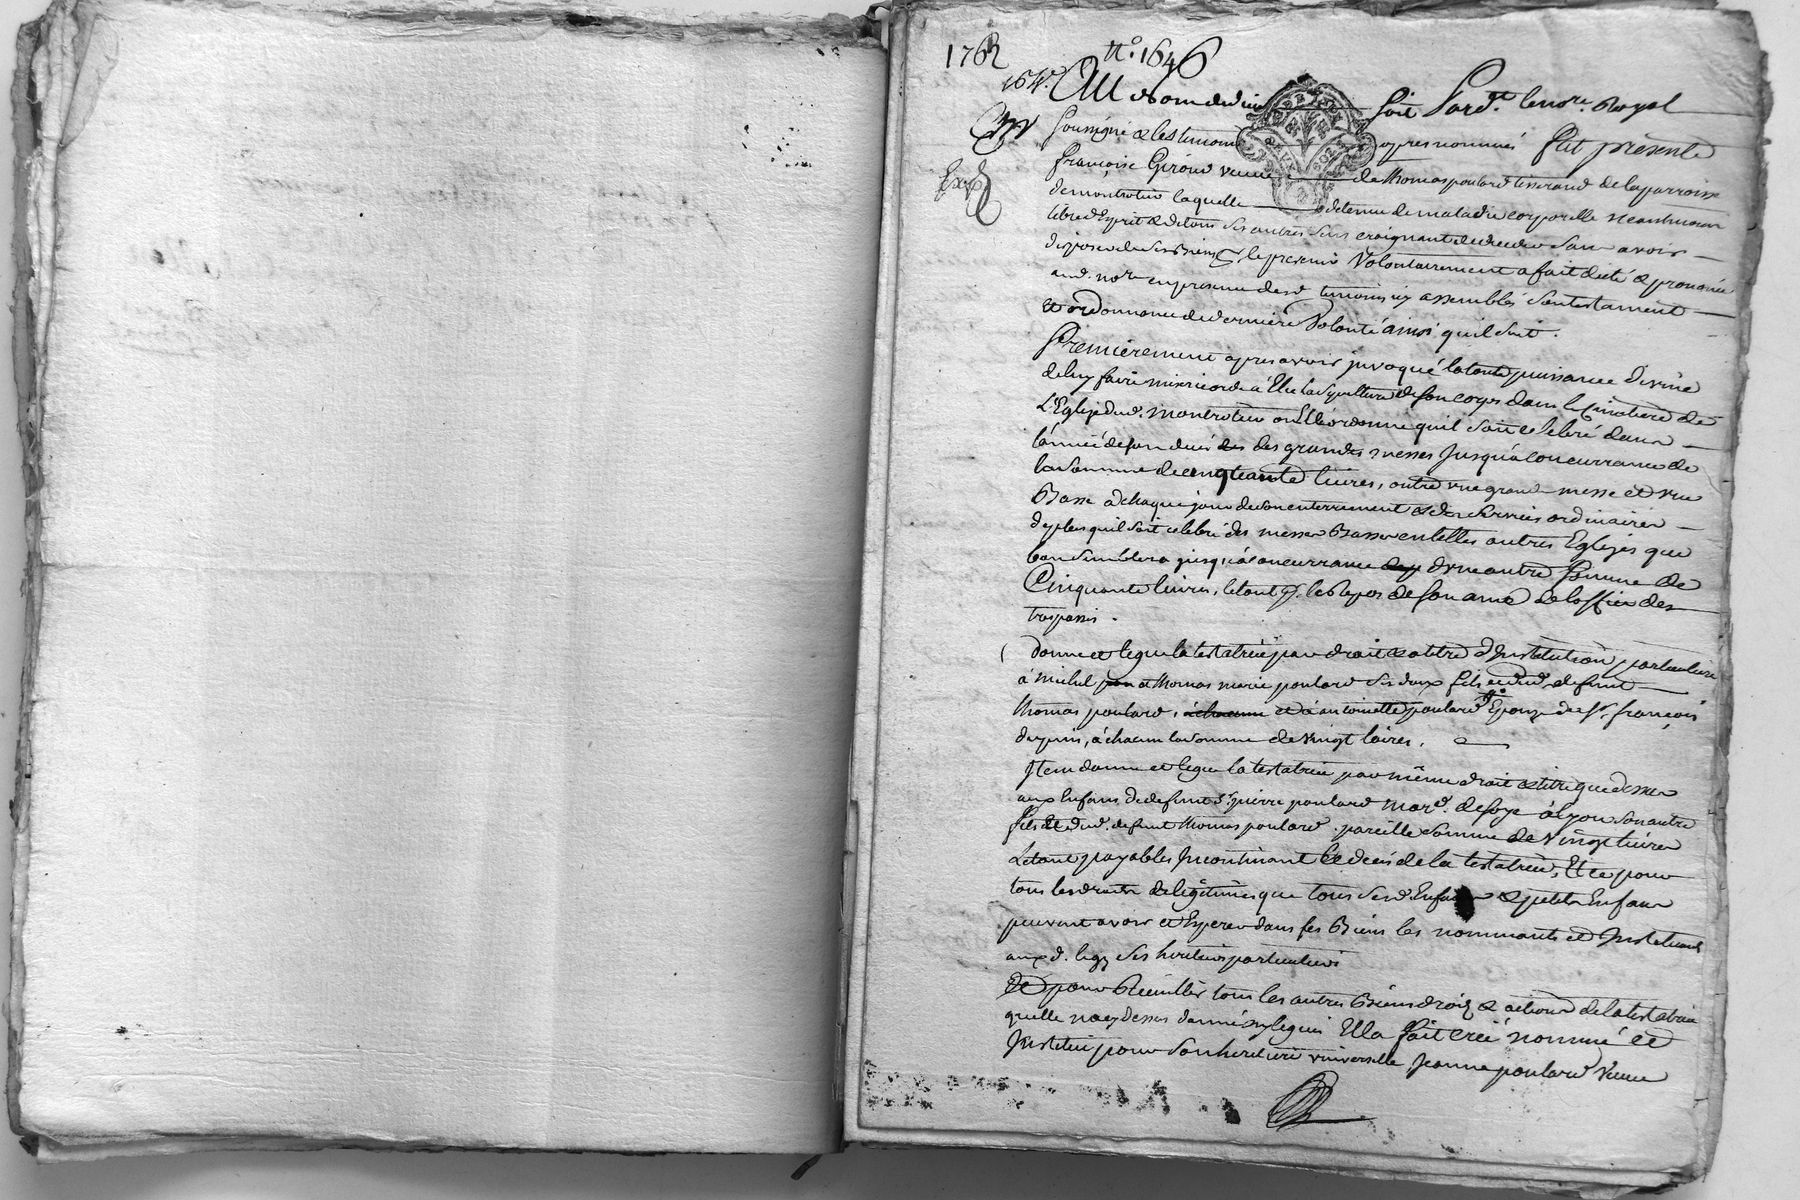 1762 n.º 1646
164e. Au nom de dieu soit Pard.t le no.re Royal
Soussigné & les temoins apres nommés fut presente
françoise Giroud veuve de Thomas poulard tisserand de la parroisse
de montrotier laquelle detenue de maladie corporelle neantmoins
libre d'Esprit & de tous ses autres sens craignant de deceder sans avoir
disposé de ses Biens, de son gré Volontairement a fait dicté & prononcé
aud. no.re en presence desd. temoins icy assemblés son testament
et ordonnance de derniere Volonté ainsi quil suit.
Premierement apres avoir jnvoqué la toute puissance Divine
de luy faire misericorde a Elu la sepulture de son corps dans le cimetiere de
L'Eglise dud. montrotier ou Elle ordonne quil soit celebré dans
l'année de son deces des grandes messes Jusqu'a concurrance de
la somme de cinquante livres, outre une grande messe et une
Basse a chaque jour de son enterrement & des services ordinaires
de plus quil soit celebré des messes Basses en telles autres Eglises que
bon semblera jusqu'a concurrance d'une autre somme de
Cinquante livres, le tout p.r le Repos de son ame & de celles des
trepassés.
donne et legue la testatrice par droit & a titre d'Institution particuliere
a michel & thomas marie poulard ses deux fils et dud. defunt
thomas poulard, et a antoinette poulard Epouse de S.r françois
dupuis, a chacun la somme de vingt livres.
Jtem donne et legue la testatrice par même droit & titre que dessus
aux Enfans de defunt S.r pierre poulard mar.d de soye a Lyon son autre
fils et dud. defunt thomas poulard pareille somme de vingt livres
Le tout payables Jncontinant le deces de la testatrice, Et ce pour
tous les droits de legitimes que tous sesd. Enfans & petits Enfans
peuvent avoir et Esperer dans ses Biens les nommants et Jnstituants
auxd. legs ses heritiers particuliers
Et pour Recuillir tous les autres Biens droits & actions de la testatrice
quelle na cy dessus donné ny legués Ella fait créé nommé et
Jnstitué pour son heritiere universelle Jeanne poulard Veuve